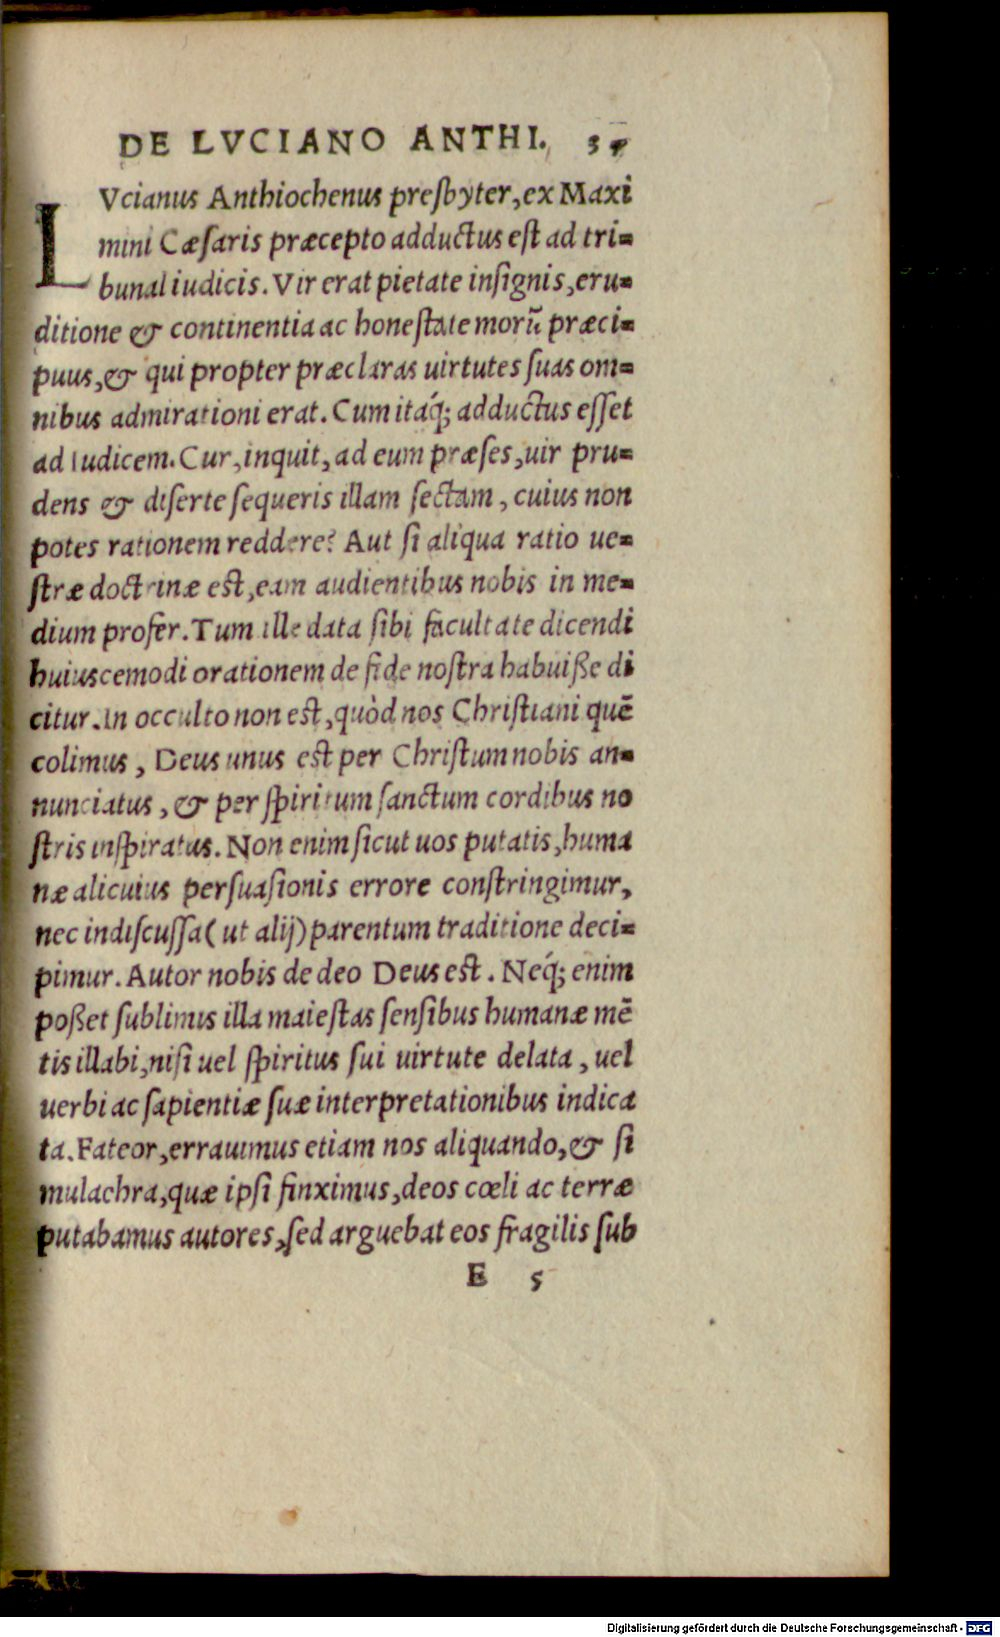 DE LVCIANO ANTHI.
LVcianus Anthiochenus presbyter, ex Maxi
mini Cæsaris præcepto adductus est ad tri=
bunal iudicis. Vir erat pietate insignis, eru=
ditione & continentia ac honestate morũ præci=
puus, & qui propter præclaras uirtutes suas om=
nibus admirationi erat. Cum itaq́; adductus esset
ad Iudicem. Cur, inquit, ad eum præses, uir pru=
dens & diserte sequeris illam sectam, cuius non
potes rationem reddere? Aut si aliqua ratio ue=
stræ doctrinæ est, eam audientibus nobis in me=
dium profer. Tum ille data sibi facultate dicendi
huiuscemodi orationem de fide nostra habuiße di
citur. In occulto non est, quòd nos Christiani quē
colimus, Deus unus est per Christum nobis an=
nunciatus, & per spiritum sanctum cordibus no
stris inspiratus. Non enim sicut uos putatis, huma
næ alicuius persuasionis errore constringimur,
nec indiscussa (ut alij) parentum traditione deci=
pimur. Autor nobis de deo Deus est. Neq́; enim
poßet sublimis illa maiestas sensibus humanæ mē
tis illabi, nisi uel spiritus sui uirtute delata, uel
uerbi ac sapientiæ suæ interpretationibus indica
ta. Fateor, errauimus etiam nos aliquando, & si
mulachra, quæ ipsi finximus, deos cœli ac terræ
putabamus autores, sed arguebat eos fragilis sub
E 5
Digitalisierung gefördert durch die Deutsche Forschungsgemeinschaft - DFG